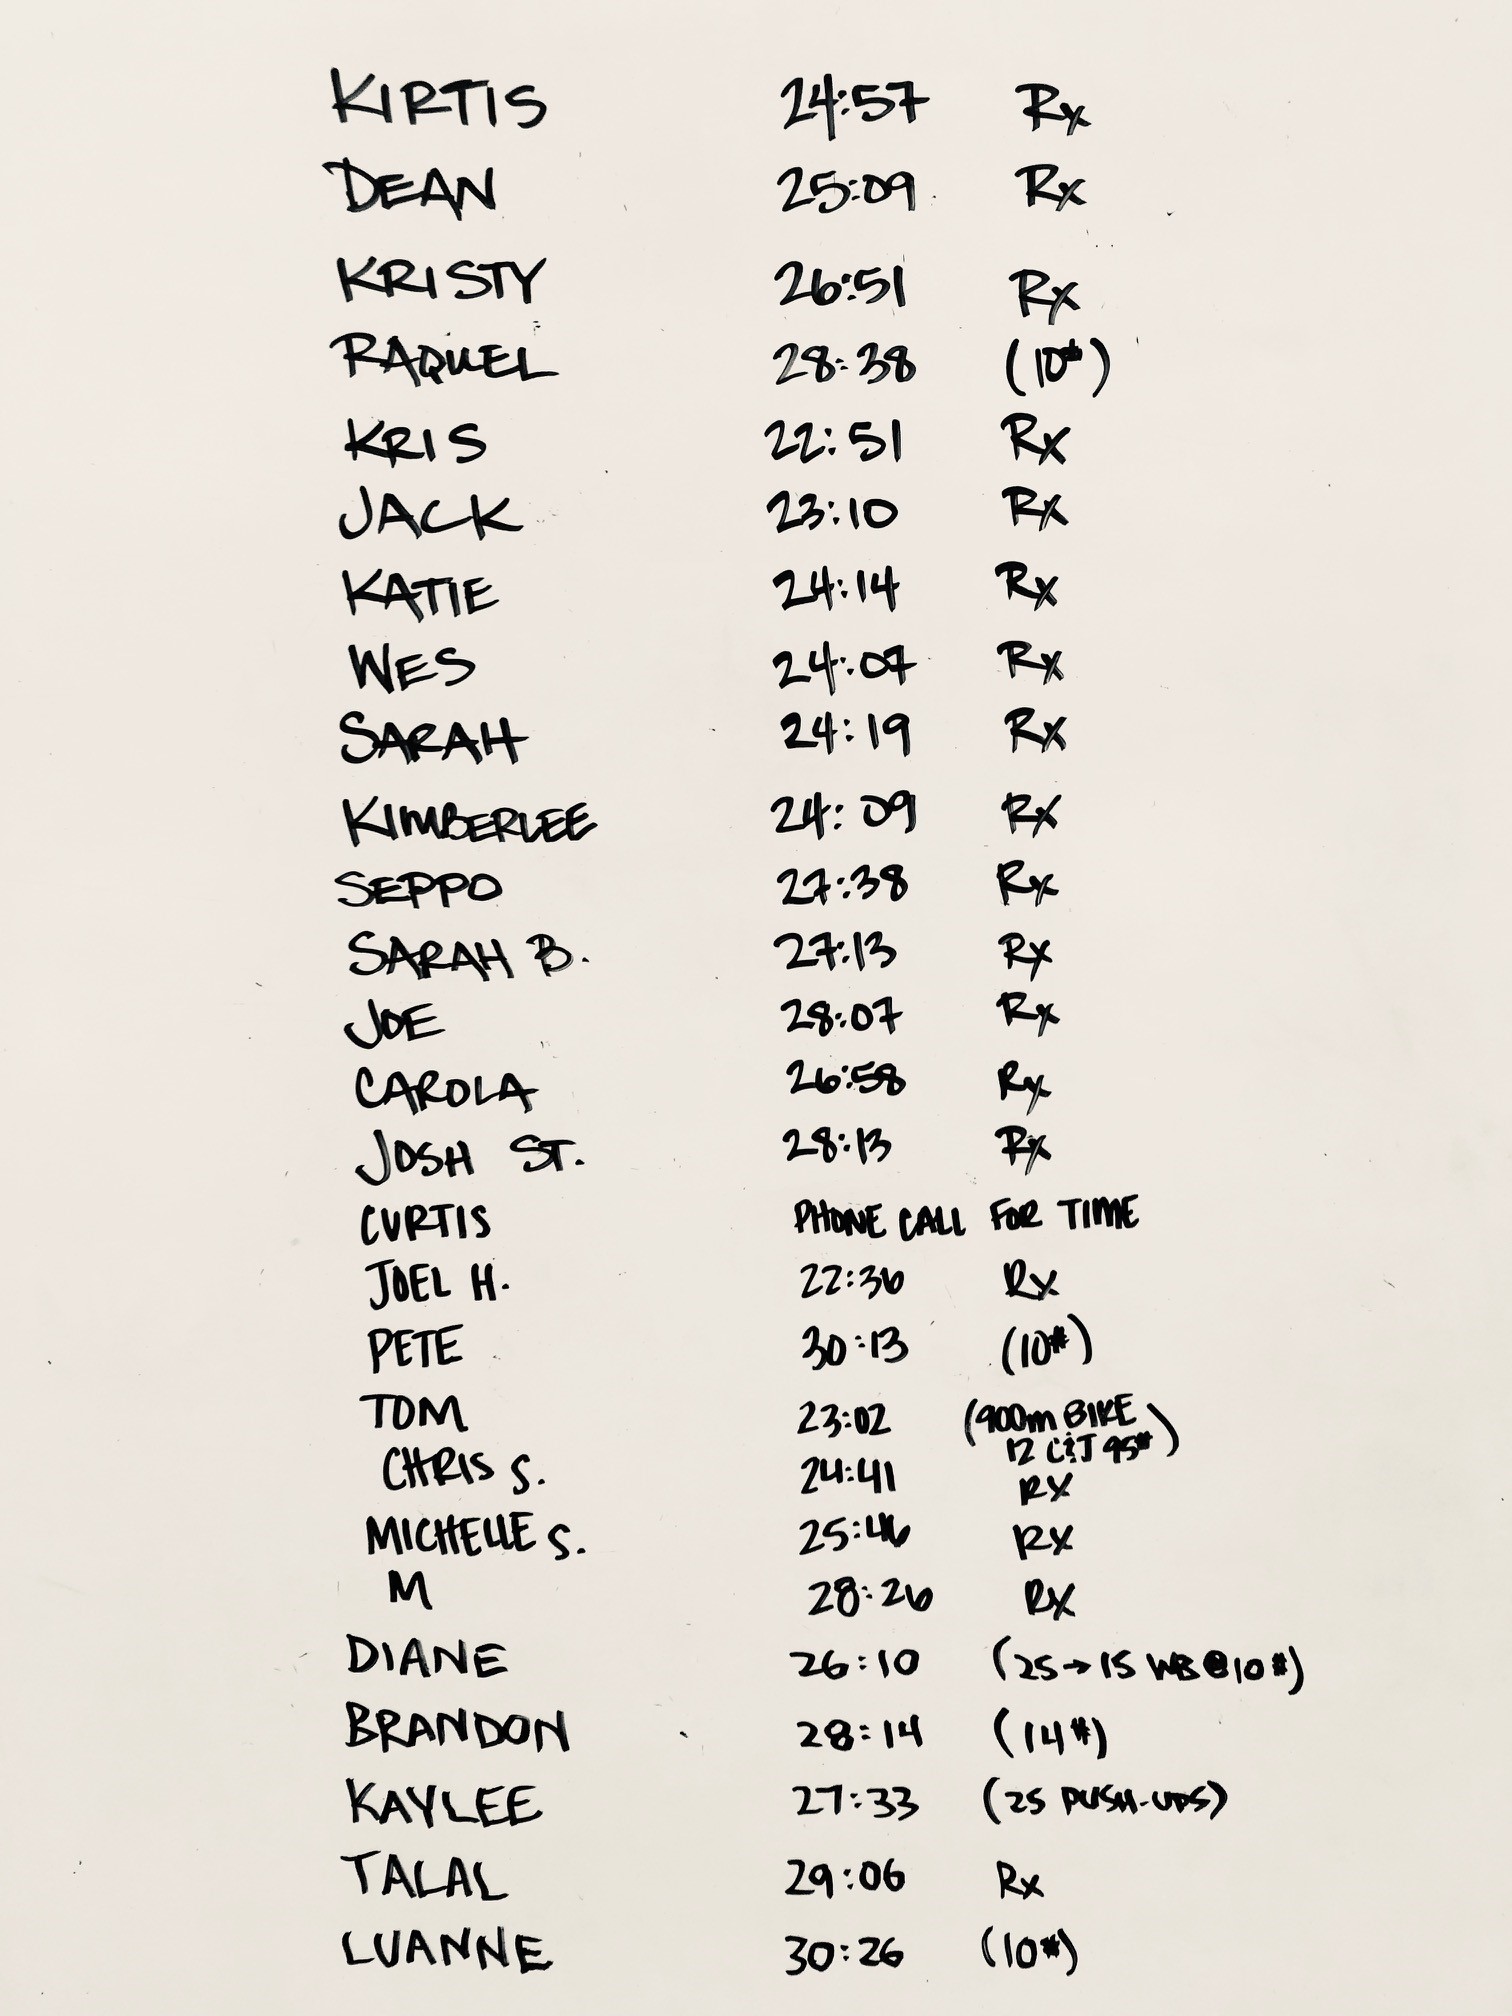 KIRTIS 24:57 Rx
DEAN 25:09 Rx
KRISTY 26:51 Rx
RAQUEL 28:38 (10#)
KRIS 22:51 Rx
JACK 23:10 Rx
KATIE 24:14 Rx
WES 24:07 Rx
SARAH 24:19 Rx
KIMBERLEE 24:09 Rx
SEPPO 27:38 Rx
SARAH B. 27:13 Rx
JOE 28:07 Rx
CAROLA 26:58 Rx
JOSH ST. 28:13 Rx
CURTIS PHONE CALL FOR TIME
JOEL H. 22:36 Rx
PETE 30:13 (10#)
TOM 23:02 (900m BIKE
12 C&J 95#)
CHRIS S. 24:41 RX
MICHELLE S. 25:46 RX
M 28:26 RX
DIANE 26:10 (25→15 WB @ 10#)
BRANDON 28:14 (14#)
KAYLEE 27:33 (25 PUSH-UPS)
TALAL 29:06 Rx
LUANNE 30:26 (10#)